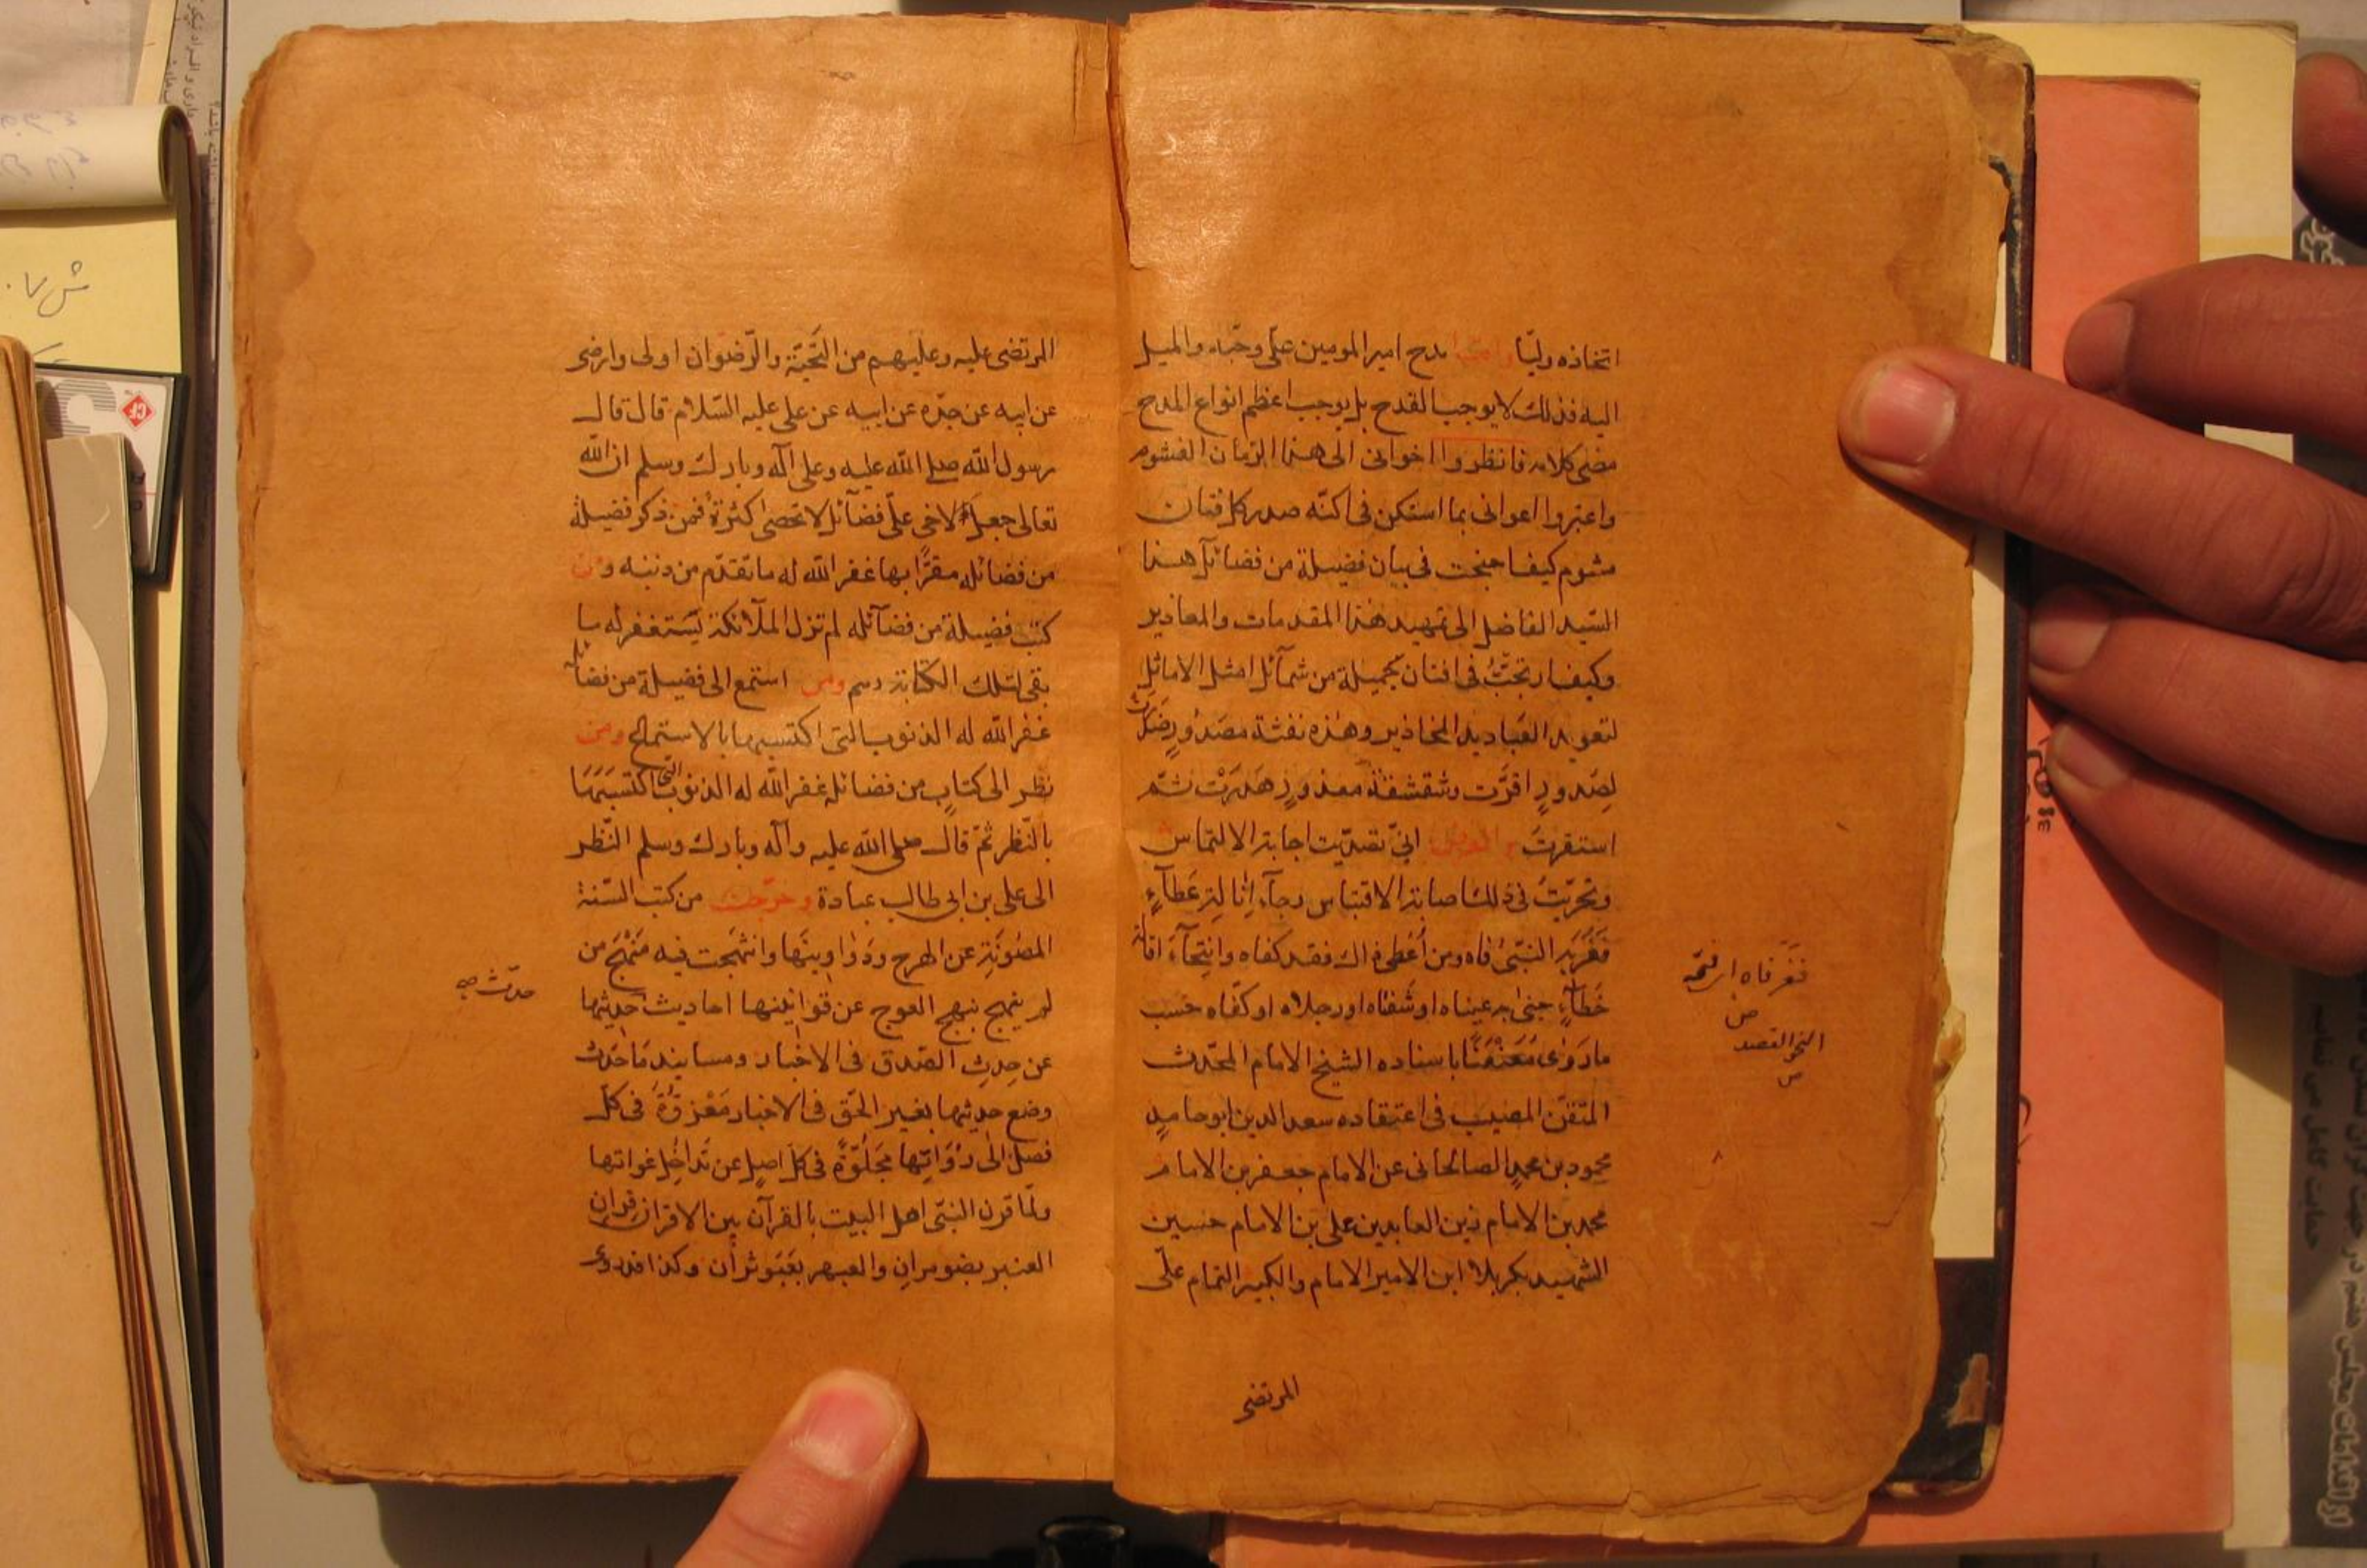 اتخاذه وليّا واما مدح امير المومنين علي وحبّه والميل
اليه فذلك لا يوجب القدح بل يوجب اعظم انواع المدح
مضى كلامه فانظروا اخوانى الى هذا الزمان الغشوم
واعتبروا اعوانى بما استكن فى اكنّه صدر كل فتان
مشوم كيف جنحت فى بيان فضيلة من فضائل هذا
السّيد الفاضل الى تمهيد هذه المقدمات والمعاذير
وكيف فى افنان جميلة من شمآئل امثل الاماثل
لتعويد المحاذير وهذه نفثة مصدور
لصدور اقرّت وشقشقة معذور هدرت ثم
استقرت انى تصدّيت اجابة الالتماس
وتحرّيت فى ذلك اصابة الاقتباس رجآء انالة عطآء
النبّى فاه ومن أعطى ذاك فقد كفاه وانتحآء اقالة
خطآء جنى به عيناه او شفتاه او رجلاه او كفّاه حسب
ما روى معنعنا باسناده الشيخ الامام المحدّث
المتقن المصيب فى اعتقاده سعد الدين ابو حامد
محمود بن محمد الصالحانى عن الامام جعفر بن الامام
محمد بن الامام زين العابدين على بن الامام حسين
الشهيد بكربلا ابن الامير الامام والكبير التمام علّى
فغر فاه اى فتحه
ص
النحو القصد
ص
المرتضى
المرتضى عليه وعليهم من التّحيّة والرّضوان اولى وارضى
عن ابيه عن جدّه عن ابيه عن على عليه السّلام قال قال
رسول الله صلى الله عليه وعلى آله وبارك وسلم ان الله
تعالى جعل لاخى علّى فضآئل لا تحصى اكثرة فمن ذكر فضيلة
من فضائله مقرّا بها غفر الله له ما تقدّم من ذنبه ومن
كتب فضيلة من فضآئله لم تزل الملآئكة يستغفر له ما
بقى لتلك الكتابة رسم ومن استمع الى فضيلة من فضائله
غفر الله له الذنوب التى اكتسبها بالاستماع ومن
نظر الى كتاب من فضائله غفر الله له الذنوب التى اكتسبها
بالنّظر ثمّ قال صلى الله عليه وآله وبارك وسلم النّظر
الى على بن ابى طالب عبادة وخرّجت من كتب السّنة
المصونة عن الهرج ودواوينها وانتهجت فيه منهج من
لم ينهج نهج العوج عن قوانينها احاديث
عن حدث الصّدق فى الاخبار ومسانيد ما حدث
وضع حديثها بغير الحق فى الاخبار معزوّة فى كل
فصل الى رواتها مجلوّة فى كل اصل عن تداخل غواتها
ولمّا قرن النبّى اهل البيت بالقرآن بين الاقران قران
العنبر بضومران والعبهر بعبوثران وكذا
حدّث